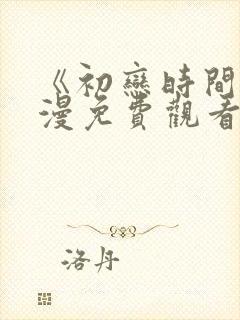 《初戀時間
漫免費觀看
洛丹